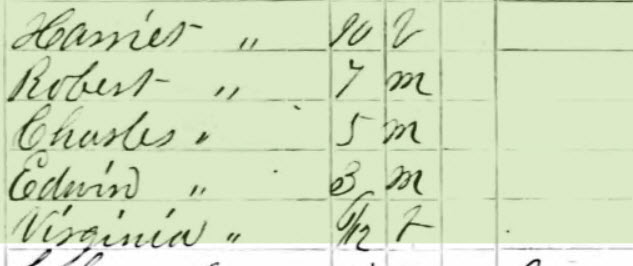 Harriet " 10 f
Robert " 7 m
Charles " 5 m
Edwin " 3 m
Virginia " 6/12 f